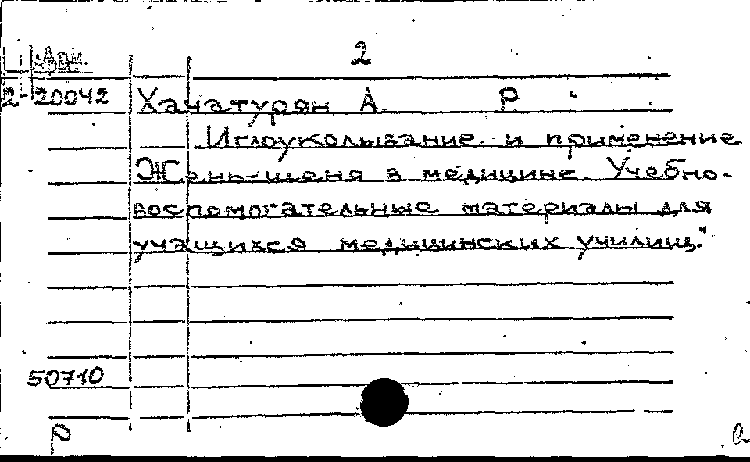 2
2-20042 Хачатурян А Р
Иглоукалывание и применение
Жень-шеня в медицине. Учебно-
воспомогательные материалы для
учащихся медицинских училищ."
50710
Р